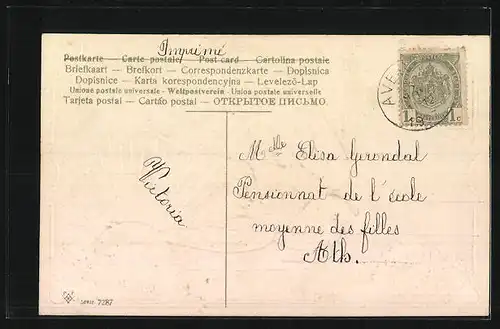 Imprimé
Postkarte — Carte postale — Post card — Cartolina postale
Briefkaart — Brefkort — Correspondenzkarte — Dopisnica
Dopisnice — Karta korespondencyjna — Levelező-Lap
Unione postale universale - Weltpostverein - Union postale universelle
Tarjeta postal — Cartão postal — ОТКРЫТОЕ ПИСЬМО.
AVE
1c 1c
Mdlle Elisa Gerondal
Pensionnat de l'école
moyenne des filles
Ath.
Victoria
SERIE 7287